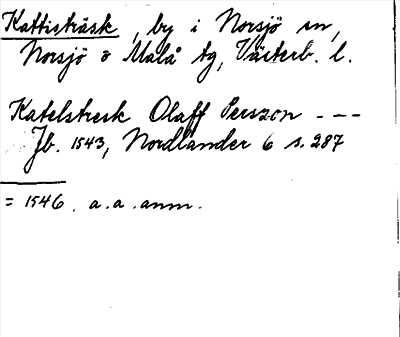 Kattisträsk, by i Norsjö sn,
Norsjö o Malå tg, Västerb. l.
Katelstresk Olaff Persson ---
Jb. 1543, Nordlander 6 s. 287
= 1546. a.a. anm.